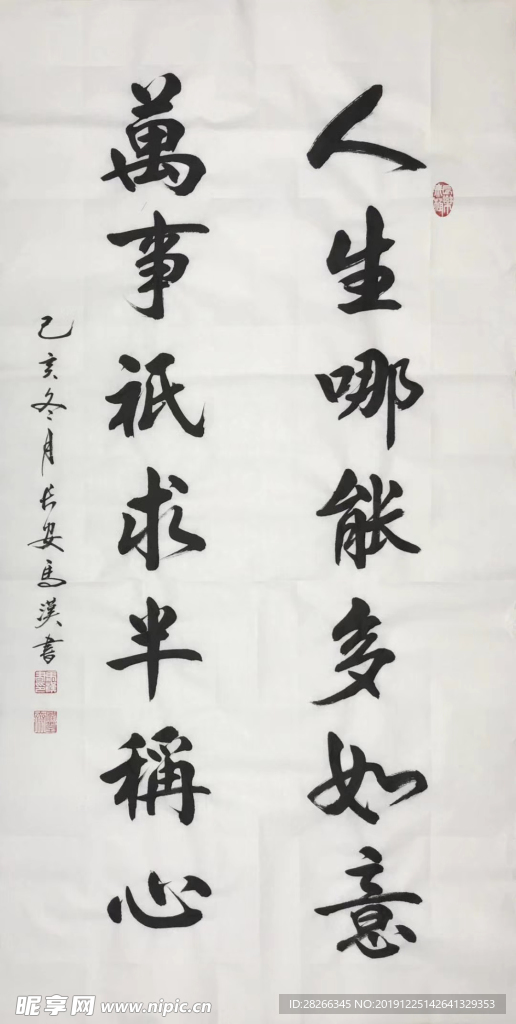 人生哪能多如意
萬事祇求半稱心
己亥冬月长安馬漢書
昵享网 www.nipic.cn
ID:28266345 NO:20191225142641329353